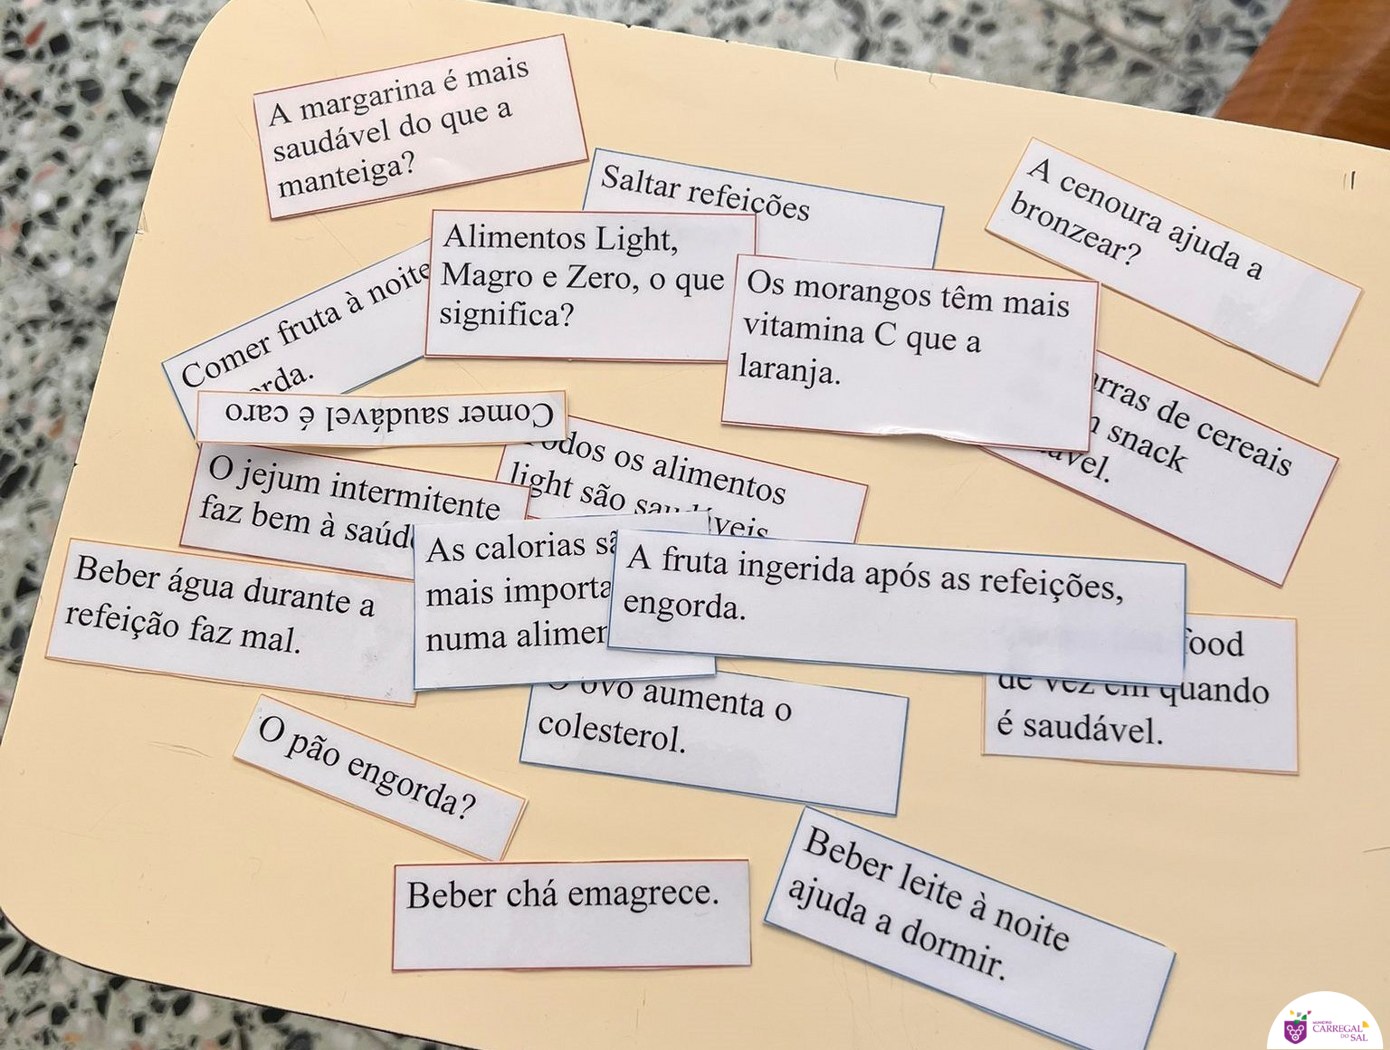 A margarina é mais
saudável do que a
manteiga?
Saltar refeições
A cenoura ajuda a
bronzear?
Alimentos Light,
Magro e Zero, o que
significa?
Os morangos têm mais
vitamina C que a
laranja.
Comer fruta à noite
Comer saudável é caro
de cereais
snack
odos os alimentos
light são
O jejum intermitente
faz bem à
As calorias
mais
A fruta ingerida após as refeições,
engorda.
Beber água durante a
refeição faz mal.
food
de vez em quando
é saudável.
O ovo aumenta o
colesterol.
O pão engorda?
Beber chá emagrece.
Beber leite à noite
ajuda a dormir.
MUNICÍPIO
CARREGAL
DO SAL